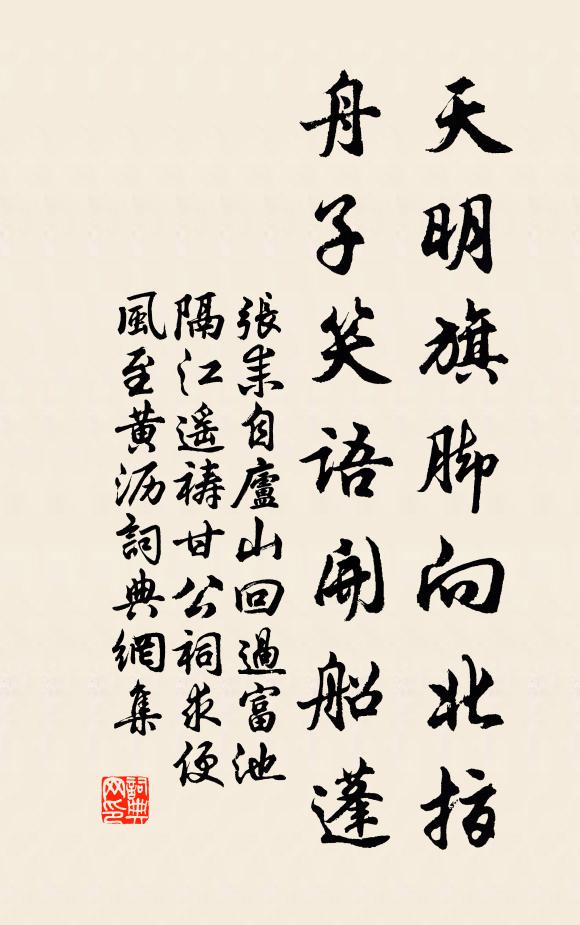 天明旗脚向北指
舟子笑語開船蓬
張耒自廬山回過富池
隔江遥祷甘公祠求便
風至黄沥詞典網集
詞典网印